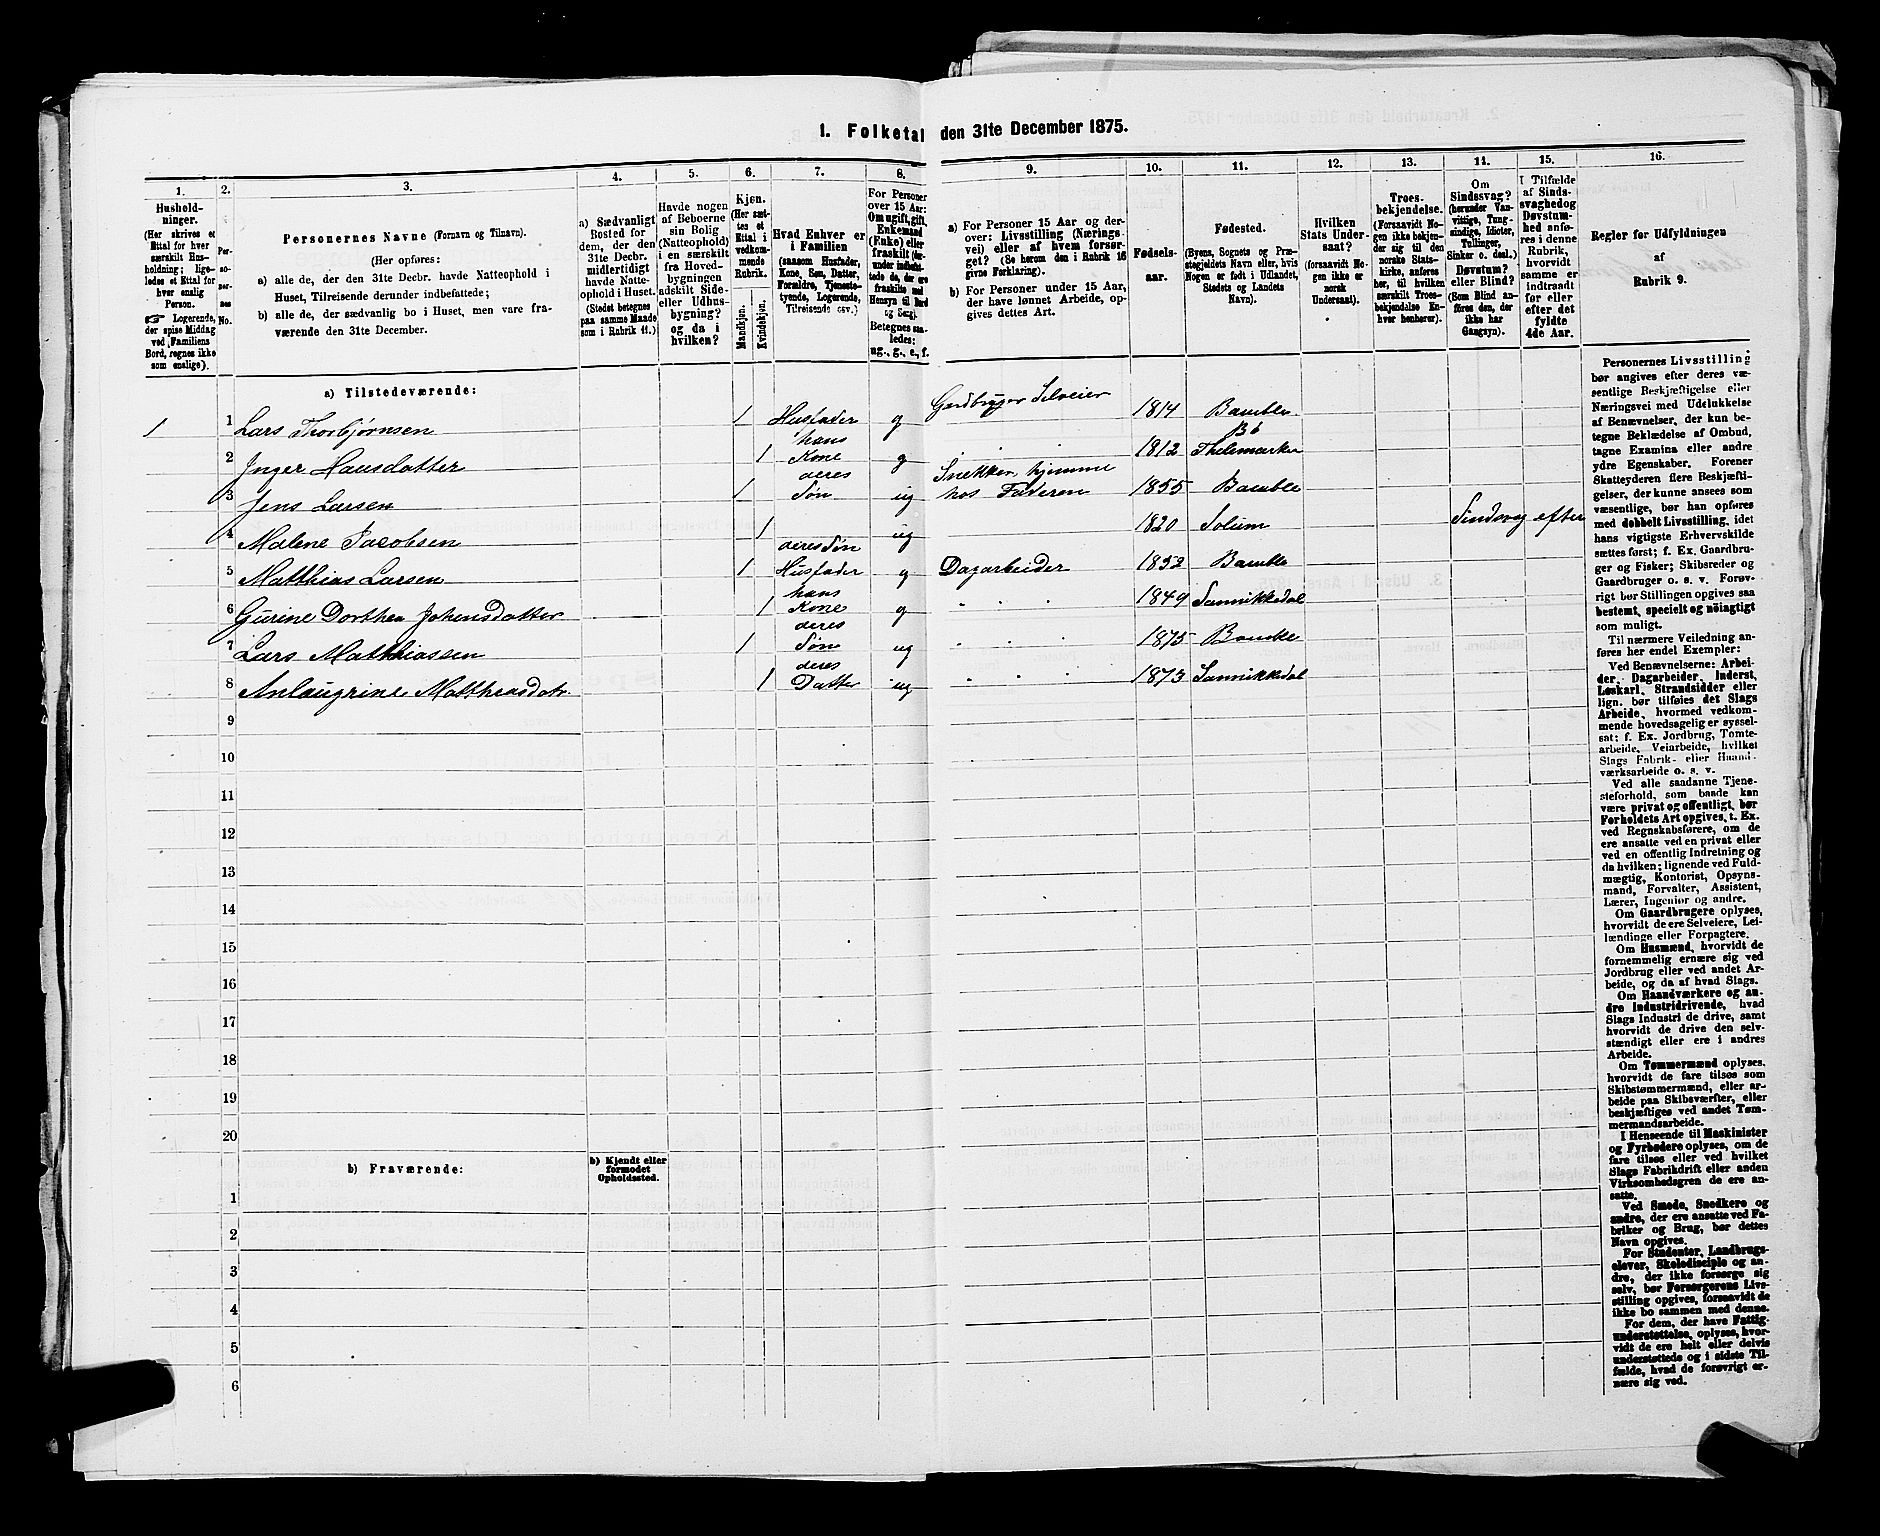 1. Folketal den 31te December 1875.
1. 2. 3. 4. 5. 6. 7. 8. 9. 10. 11. 12. 13. 14. 15. 16.
Hushold-
ninger.
(Her skrives et
Ettal for hver
særskilt Hus-
holdning; lige-
ledes et Ettal for
hver enslig
Person.
☞ Logerende,
der spise Middag
ved Familiens
Bord, regnes ikke
som enslige).
Per-
so-
ner-
nes
No.
Personernes Navne (Fornavn og Tilnavn).
(Her opføres:
a) alle de, der den 31te Decbr. havde Natteophold i
Huset, Tilreisende derunder indbefattede;
b) alle de, der sædvanlig bo i Huset, men vare fra-
værende den 31te December.
a) Sædvanligt
Bosted for
dem, der den
31te Decbr.
midlertidigt
havde Natte-
ophold i Huset.
(Stedet betegnes
paa samme Maade
som i Rubrik 11.)
Havde nogen
af Beboerne
sin Bolig
(Natteophold)
i en særskilt
fra Hoved-
bygningen
adskilt Side-
eller Udhus-
bygning?
og da i
hvilken?
Kjøn.
(Her sæt-
tes et
Ettal i
vedkom-
mende
Rubrik.
Mandkjøn.
Kvindekjøn.
Hvad Enhver er
i Familien
(saasom Husfader,
Kone, Søn, Datter,
Forældre, Tjeneste-
tyende, Logerende,
Tilreisende osv.)
For Personer
over 15 Aar:
Om ugift, gift,
Enkemand
(Enke) eller
fraskilt (der-
under indbefat-
tede de, der ere
fraskilte med
Hensyn til Bord
og Seng).
Betegnes saa-
ledes:
ug., g., e., f.
a) For Personer 15 Aar og der-
over: Livsstilling (Nærings-
vei) eller af hvem forsør-
get? (Se herom den i Rubrik 16
givne Forklaring).
b) For Personer under 15 Aar,
der have lønnet Arbeide, op-
gives dettes Art.
Fødsels-
aar.
Fødested.
(Byens, Sognets og Præ-
stegjeldets Navn eller, hvis
Nogen er født i Udlandet,
Stedets og Landets
Navn).
Hvilken
Stats Under-
saat?
(forsaavidt No-
gen ikke er
norsk
Undersaat).
Troes-
bekjendelse.
(Forsaavidt No-
gen ikke bekjen-
der sig til den
norske Stats-
kirke, anføres
her, til hvilken
særskilt Troes-
bekjendelse En-
hver henhører).
Om
Sindssvag?
(herunder Van-
vittige, Tung-
sindige, Idioter,
Tullinger,
Sinker o. desl.)
Døvstum?
eller Blind?
(Som Blind an-
føres den, der
ikke har
Gangsyn).
I Tilfælde
af Sinds-
svaghed og
Døvstum-
hed anføres
i denne
Rubrik,
hvorvidt
samme er
indtraadt
før eller
efter det
fyldte
4de Aar.
Regler for Udfyldningen
af
Rubrik 9.
a) Tilstedeværende:
1 1 Lars Thorbjørnsen 1 Husfader g Gardbruger Selveier 1814 Bamble
2 Inger Hansdatter 1 hans Kone g 1812 Bø Thelemarken
3 Jens Larsen 1 deres Søn ug Snekker hjemme hos Faderen 1855 Bamble
4 Malene Jacobsen 1 ug 1820 Solum Sindsvag efter
5 Matthias Larsen 1 deres Søn Husfader g Dagarbeider 1852 Bamble
6 Gurine Dorthea Johensdatter 1 hans Kone g 1849 Sannikedal
7 Lars Matthiassen 1 deres Søn ug 1875 Bamble
8 Anlaugrine Matthiasdatr 1 deres Datter ug 1873 Sannikkedal
9
10
11
12
13
14
15
16
17
18
19
20
b) Fraværende:
b) Kjendt eller
formodet
Opholdssted.
1
2
3
4
5
6
Personernes Livsstilling
bør angives efter deres væ-
sentlige Beskjæftigelse eller
Næringsvei med Udelukkelse
af Benævnelser, der kun be-
tegne Beklædelse af Ombud,
tagne Examina eller andre
ydre Egenskaber. Forener
Skatteyderen flere Beskjæfti-
gelser, der kunne ansees som
væsentlige, bør han opføres
med dobbelt Livsstilling, idet
hans vigtigste Erhvervskilde
sættes først; f. Ex. Gaardbru-
ger og Fisker; Skibsreder og
Gaardbruger o. s. v. Forøv-
rigt bør Stillingen opgives saa
bestemt, specielt og nöiagtigt
som muligt.
Til nærmere Veiledning an-
føres her endel Exempler:
Ved Benævnelserne: Arbei-
der, Dagarbeider, Inderst,
Løskarl, Strandsidder eller
lign. bør tilføies det Slags
Arbeide, hvormed vedkom-
mende hovedsagelig er syssel-
sat; f. Ex. Jordbrug, Tomte-
arbeide, Veiarbeide, hvilket
Slags Fabrik- eller Haand-
værksarbeide o. s. v.
Ved alle saadanne Tjene-
steforhold, som baade kan
være privat og offentligt, bør
Forholdets Art opgives, t. Ex.
ved Regnskabsførere, om de
ere ansatte ved en privat eller
ved en offentlig Indretning og
da hvilken; lignende ved Fuld-
mægtig, Kontorist, Opsyns-
mand, Forvalter, Assistent,
Lærer, Ingeniør og andre.
Om Gaardbrugere oplyses,
hvorvidt de ere Selveiere, Lei-
lændinge eller Forpagtere.
Om Husmænd, hvorvidt de
fornemmelig ernære sig ved
Jordbrug eller ved andet Ar-
beide, og da af hvad Slags.
Om Haandværkere og an-
dre Industridrivende, hvad
Slags Industri de drive, samt
hvorvidt de drive den selv-
stændigt eller ere i andres
Arbeide.
Om Tømmermænd oplyses,
hvorvidt de fare tilsøs som
Skibstømmermænd, eller ar-
beide paa Skibsværfter, eller
beskjæftiges ved andet Tøm-
mermandsarbeide.
I Henseende til Maskinister
og Fyrbødere oplyses, om de
fare tilsøs eller ved hvilket
Slags Fabrikdrift eller anden
Virksomhedsgren de ere an-
satte.
Ved Smede, Snedkere og
andre, der ere ansatte ved Fa-
briker og Brug, bør dettes
Navn opgives.
For Studenter, Landbrugs-
elever, Skoledisciple og an-
dre, der ikke forsørge sig
selv, bør Forsørgerens Livs-
stilling opgives, forsaavidt de
ikke bo sammen med denne.
For dem, der have Fattig-
understøttelse, oplyses, hvor-
vidt de ere helt eller delvis
understøttede og i sidste Til-
fælde, hvad de forøvrigt er-
nære sig ved.